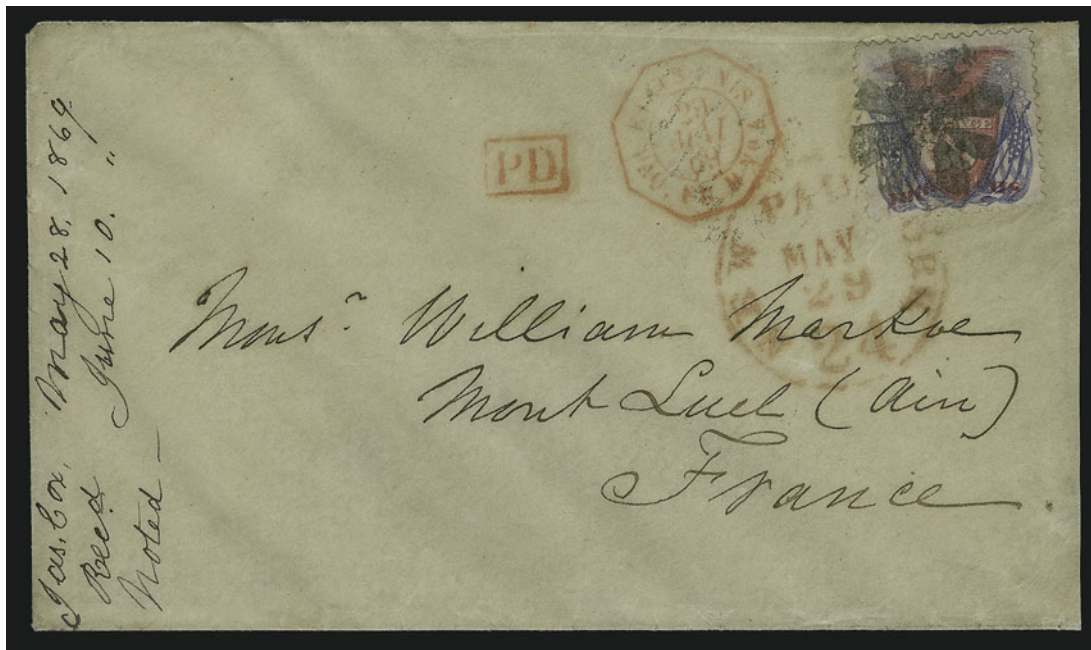 Jas. Cox. May 28. 1869
Recd June 10. "
Noted —
PD
29
MAI
69
PAID
MAY
29
24
NEW YORK
Mons.r William Markoe
Mont Luel (Ain)
France